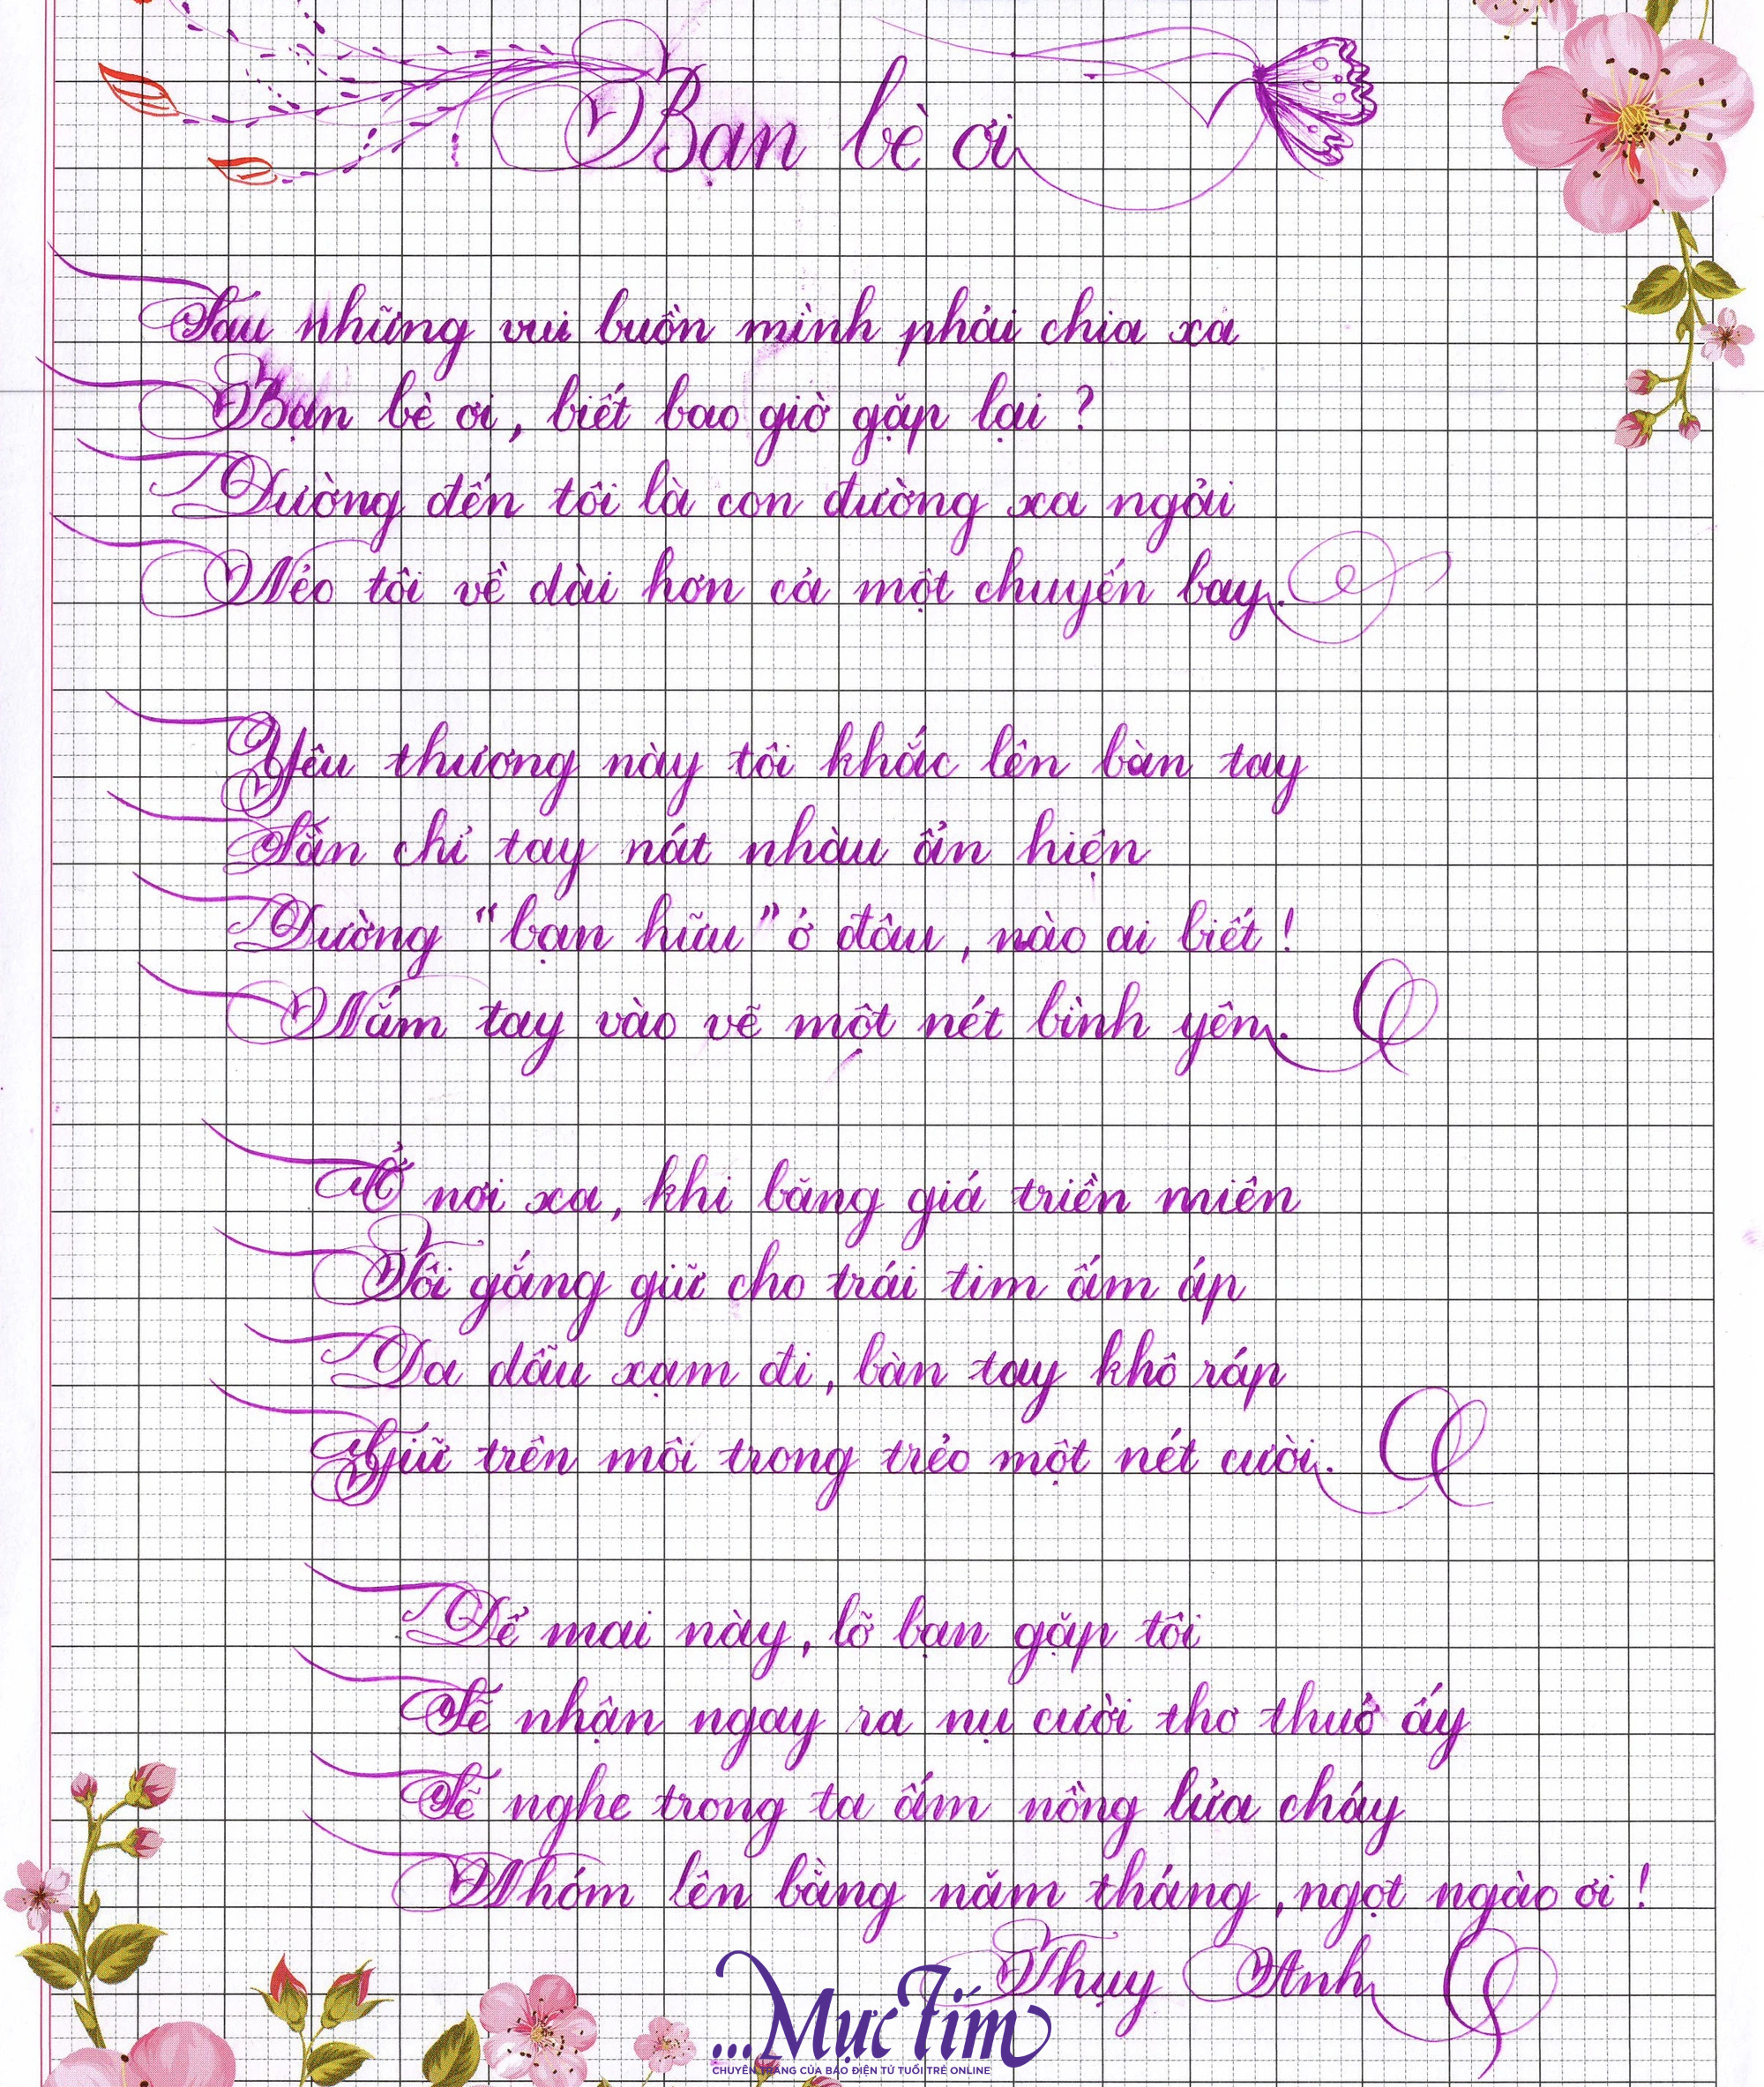 Bạn bè ơi
Sau những vui buồn mình phải chia xa
Bạn bè ơi, biết bao giờ gặp lại ?
Đường đến tôi là con đường xa ngái
Nẻo tôi về dài hơn cả một chuyến bay.
Yêu thương này tôi khắc lên bàn tay
Hằn chỉ tay nát nhàu ẩn hiện
Đường "bạn hữu" ở đâu, nào ai biết !
Nắm tay vào vẽ một nét bình yên.
Ở nơi xa, khi băng giá triền miên
Tôi gắng giữ cho trái tim ấm áp
Da dẫu xạm đi, bàn tay khô ráp
Giữ trên môi trong trẻo một nét cười.
Để mai này, lỡ bạn gặp tôi
Sẽ nhận ngay ra nụ cười thơ thuở ấy
Sẽ nghe trong ta ấm nồng lửa cháy
Nhóm lên bằng năm tháng, ngọt ngào ơi !
Thụy Anh
...Mực Tím
CHUYÊN TRANG CỦA BÁO ĐIỆN TỬ TUỔI TRẺ ONLINE